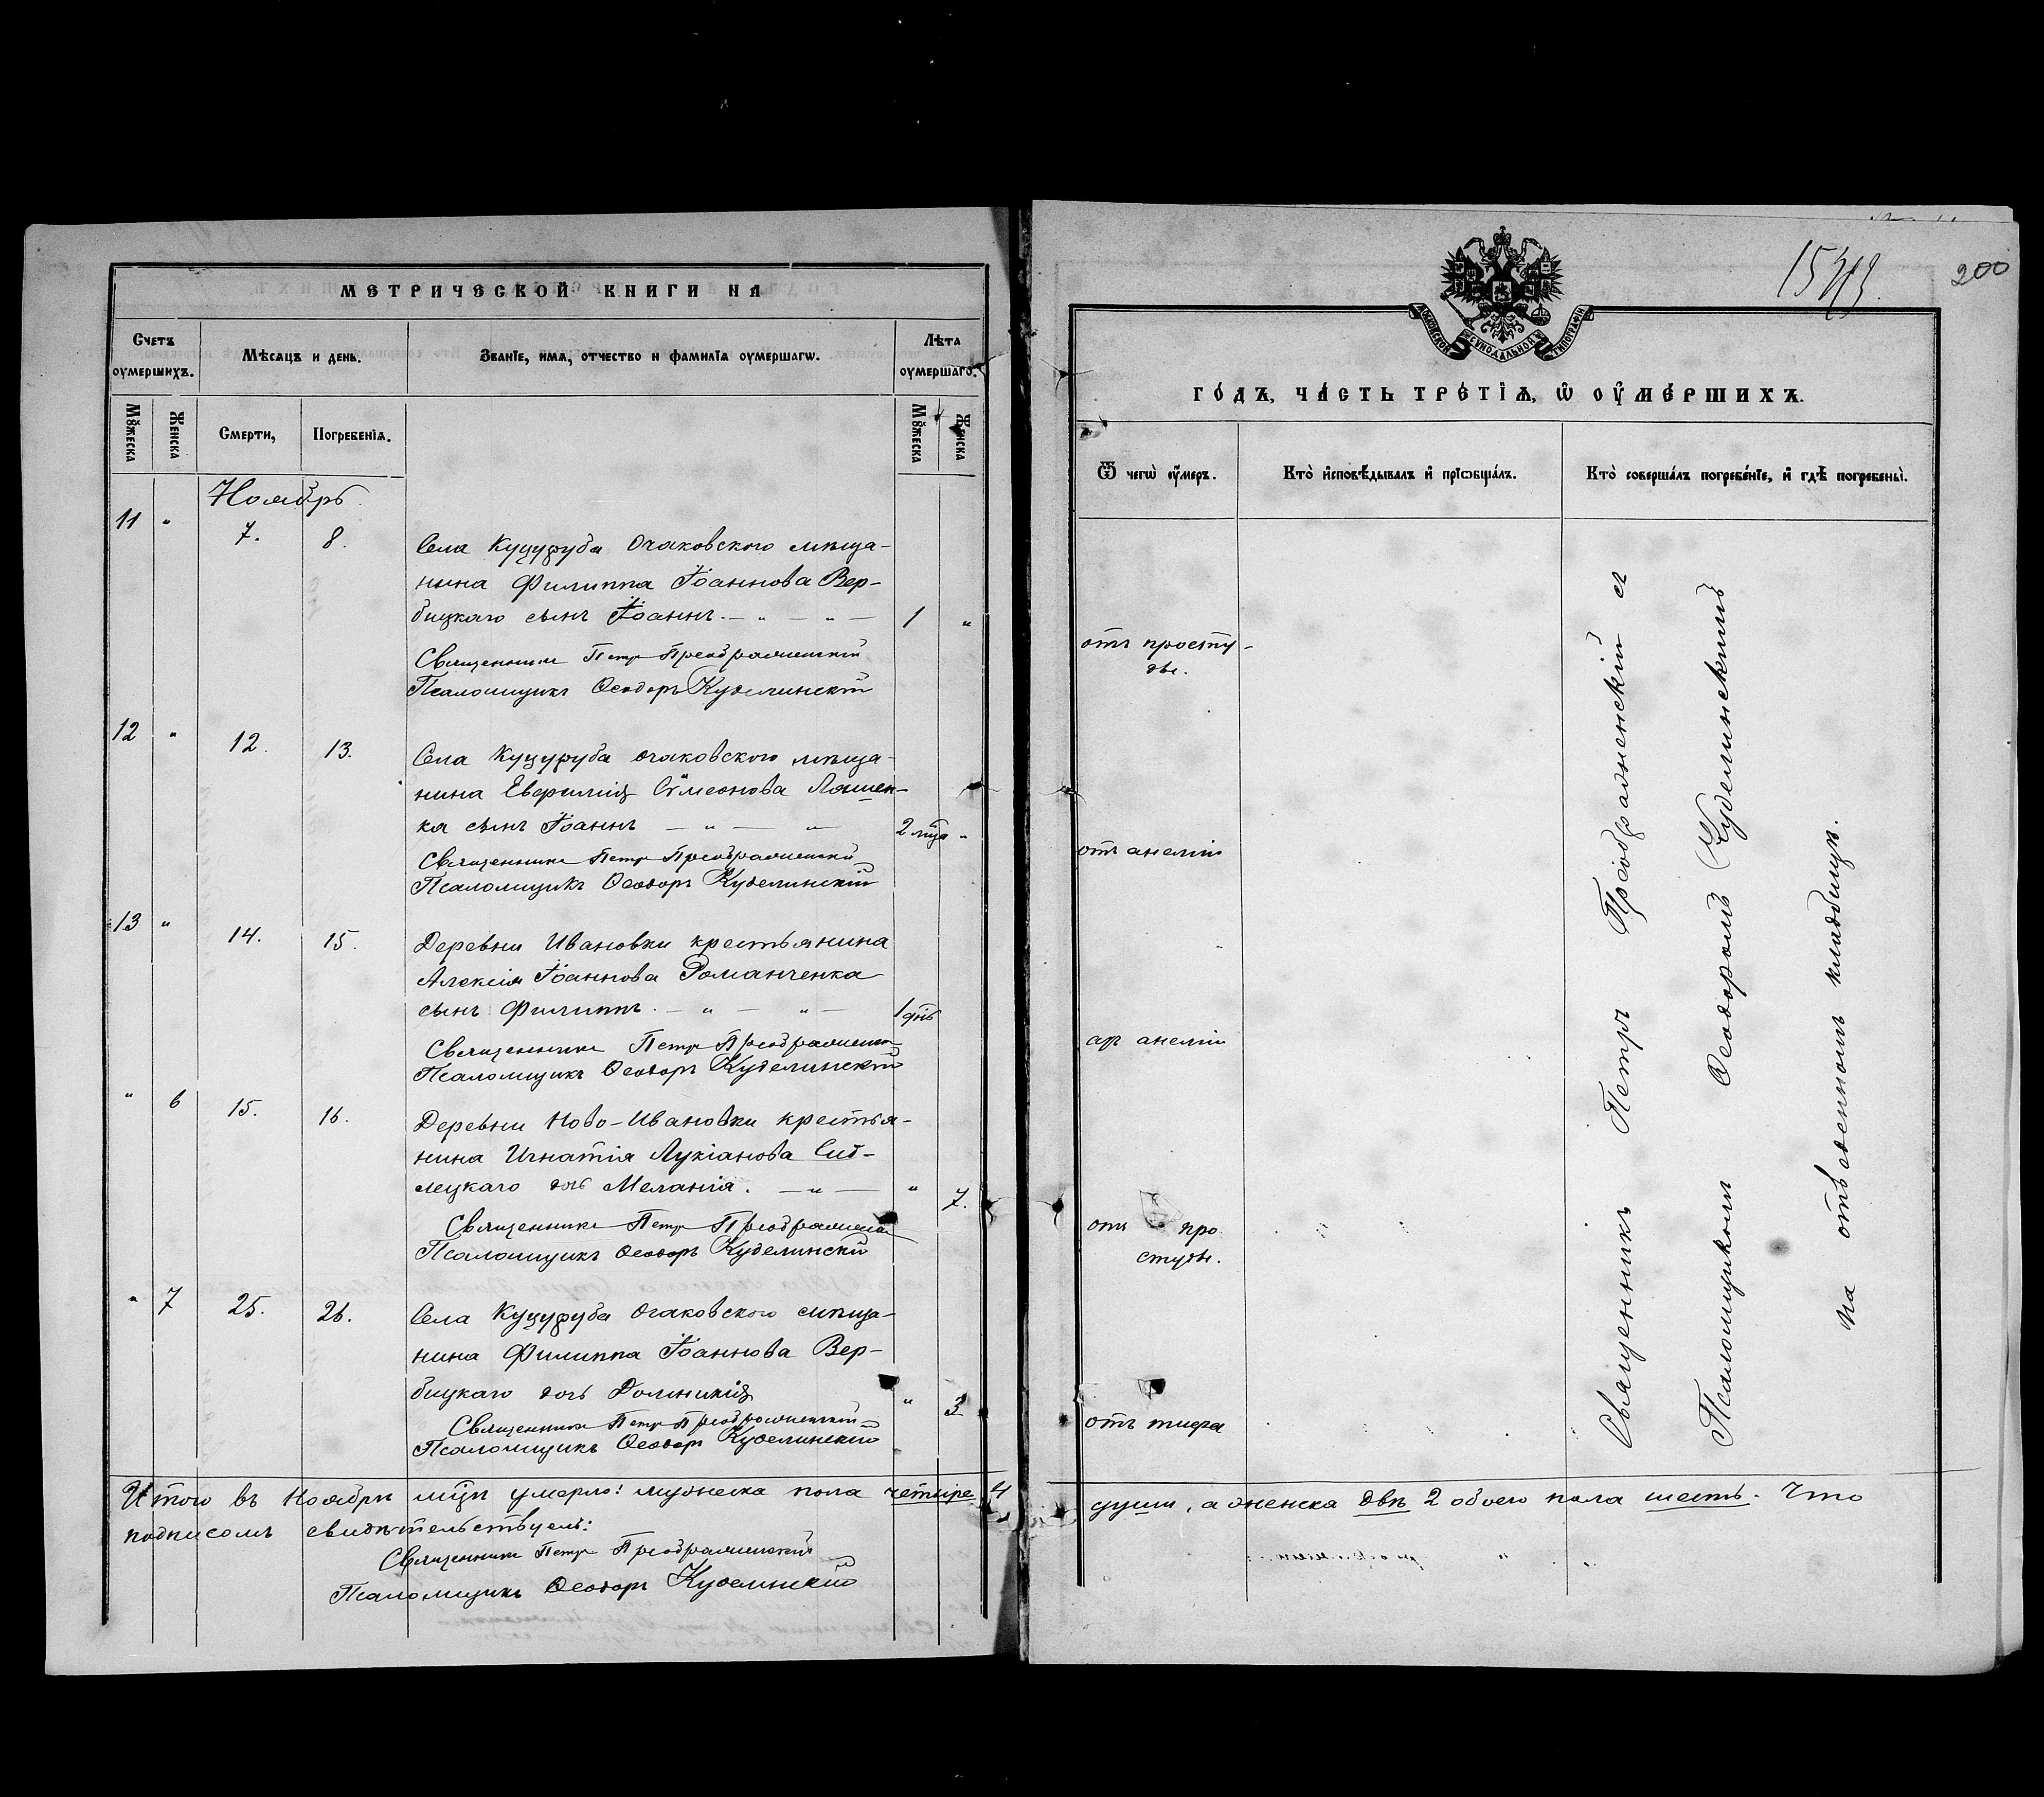 МЕТРИЧЕСКОЙ КНИГИ НА
Счетъ оумершихъ.
Мѣсяцъ и день.
Званїе, имѧ, отчество и фамилїѧ оумершагѡ.
Лѣта оумершаго.
Мꙋжеска
Женска
Смерти,
Погребенїѧ.
Мꙋжеска
Женска
Ноябрь
11 " 7. 8.
Села Куцуруба Очаковского мѣща-
нина Филиппа Іоаннова Вер-
бицкаго сынъ Іоаннъ. — " — " — 1 "
Священникъ Петръ Преображенскій
Псаломщикъ Ѳеодоръ Куделинскій
12 " 12. 13.
Села Куцуруба Очаковского мѣща-
нина Евфимія Сѵмеонова Ляшен-
ка сынъ Іоаннъ — " — " 2 мца "
Священникъ Петръ Преображенскій
Псаломщикъ Ѳеодоръ Куделинскій
13 " 14. 15.
Деревни Ивановки крестьянина
Алексія Іоаннова Романченка
сынъ Филиппъ. — " — " — 1 днь
Священникъ Петръ Преображенскій
Псаломщикъ Ѳеодоръ Куделинскій
" 6 15. 16.
Деревни Ново-Ивановки крестья-
нина Игнатія Лукіанова
дочь Меланія. — " — " 7.
Священникъ Петръ Преображенскій
Псаломщикъ Ѳеодоръ Куделинскій
" 7 25. 26.
Села Куцуруба Очаковского мѣща-
нина Филиппа Іоаннова Вер-
бицкаго дочь Домникія " 3
Священникъ Петръ Преображенскій
Псаломщикъ Ѳеодоръ Куделинскій
Итого въ Ноябрѣ мцѣ умерло: мужеска пола четыре 4
подписомъ свидѣтельствуемъ:
Священникъ Петръ Преображенскій
Псаломщикъ Ѳеодоръ Куделинскій
200
МОСКОВСКОЙ СѴНОДАЛЬНОЙ ТИПОГРАФІИ
ГО́ДЪ, ЧА́СТЬ ТРЕ́ТЇѦ, Ѡ҆ ОУ҆МЕ́РШИХЪ.
Ѿ чегѡ̀ оу҆́меръ.
Кто̀ и҆сповѣ́дывалъ и҆ прїѡбща́лъ.
Кто̀ соверша́лъ погребе́нїе, и҆ гдѣ̀ погребены̀.
отъ просту-
ды.
отъ анеміи
отъ про
студы.
отъ тифа
Священникъ Петръ Преображенскій съ
Псаломщикомъ Ѳеодоромъ Куделинскимъ
на отведенномъ кладбищѣ.
души, а женска двѣ 2 обоего пола шесть. Что